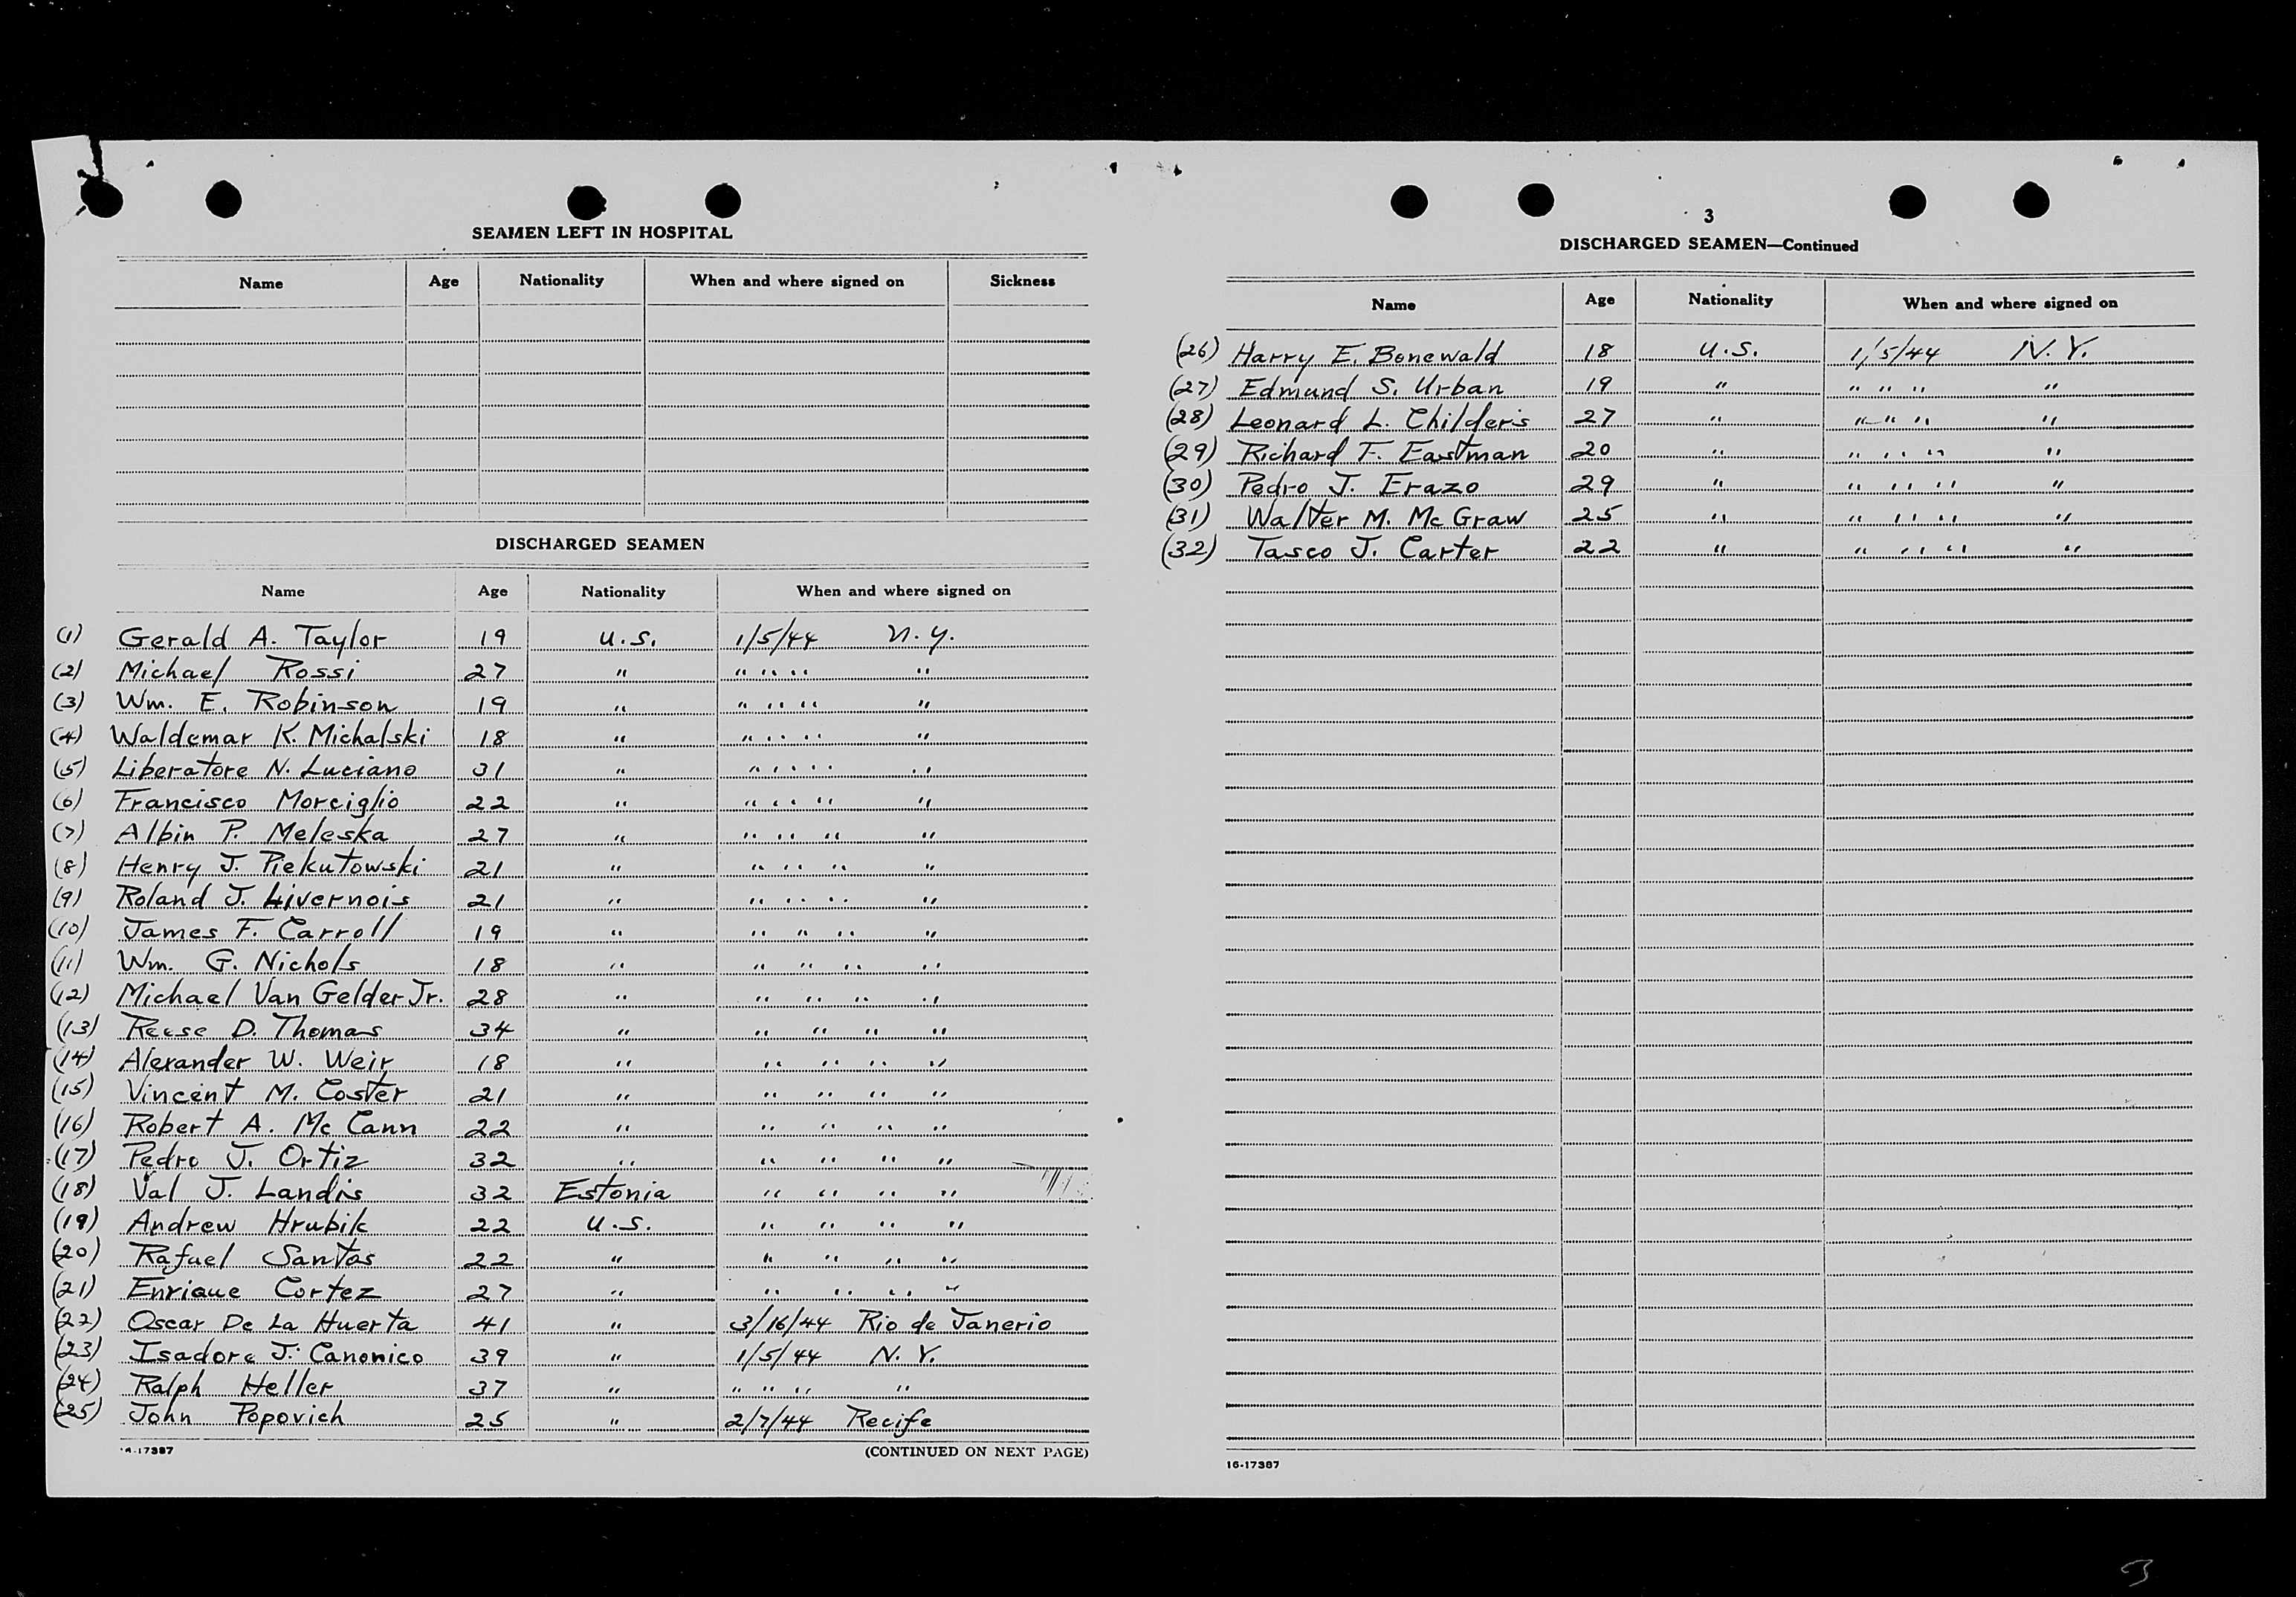 SEAMEN LEFT IN HOSPITAL
Name Age Nationality When and where signed on Sickness
DISCHARGED SEAMEN
Name Age Nationality When and where signed on
(1) Gerald A. Taylor 19 U.S. 1/5/44 N.Y.
(2) Michael Rossi 27 " " " " "
(3) Wm. E. Robinson 19 " " " " "
(4) Waldemar K. Michalski 18 " " " " "
(5) Liberatore N. Luciano 31 " " " " "
(6) Francisco Morciglio 22 " " " " "
(7) Albin P. Meleska 27 " " " " "
(8) Henry J. Piekutowski 21 " " " " "
(9) Roland J. Livernois 21 " " " " "
(10) James F. Carroll 19 " " " " "
(11) Wm. G. Nichols 18 " " " " "
(12) Michael Van Gelder Jr. 28 " " " " "
(13) Reese D. Thomas 34 " " " " "
(14) Alexander W. Weir 18 " " " " "
(15) Vincent M. Coster 21 " " " " "
(16) Robert A. Mc Cann 22 " " " " "
(17) Pedro J. Ortiz 32 " " " " "
(18) Val J. Landis 32 Estonia " " " "
(19) Andrew Hrubik 22 U.S. " " " "
(20) Rafael Santos 22 " " " " "
(21) Enrique Cortez 27 " " " " "
(22) Oscar De La Huerta 41 " 3/16/44 Rio de Janerio
(23) Isadore J. Canonico 39 " 1/5/44 N.Y.
(24) Ralph Heller 37 " " " " "
(25) John Popovich 25 " 2/7/44 Recife
16-17387 (CONTINUED ON NEXT PAGE)
3
DISCHARGED SEAMEN—Continued
Name Age Nationality When and where signed on
(26) Harry E. Bonewald 18 U.S. 1/5/44 N.Y.
(27) Edmund S. Urban 19 " " " " "
(28) Leonard L. Childers 27 " " " " "
(29) Richard F. Eastman 20 " " " " "
(30) Pedro J. Erazo 29 " " " " "
(31) Walter M. Mc Graw 25 " " " " "
(32) Tasco J. Carter 22 " " " " "
16-17387
3